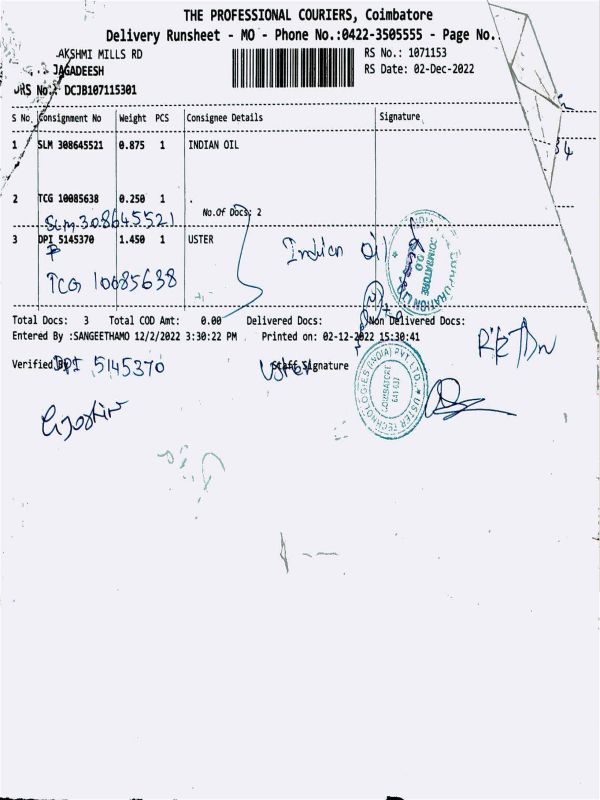 THE PROFESSIONAL COURIERS, Coimbatore
Delivery Runsheet - MO - Phone No.:0422-3505555 - Page No.
AKSHMI MILLS RD
RS No.: 1071153
JAGADEESH
RS Date: 02-Dec-2022
DRS No.: DCJB107115301
S No. Consignment No Weight PCS Consignee Details Signature
1 SLM 308645521 0.875 1 INDIAN OIL
34
2 TCG 10085638 0.250 1 .
No.Of Docs: 2
SLM 308645521
3 DPI 5145370 1.450 1 USTER
Indian Oil
TCG 10085638
Total Docs: 3 Total COD Amt: 0.00 Delivered Docs: Non Delivered Docs:
Entered By :SANGEETHAMO 12/2/2022 3:30:22 PM Printed on: 02-12-2022 15:30:41
Verified By
DPI 5145370
Uster
Staff Signature
USTER TECHNOLOGIES (INDIA) PVT. LTD.
COIMBATORE
641 037